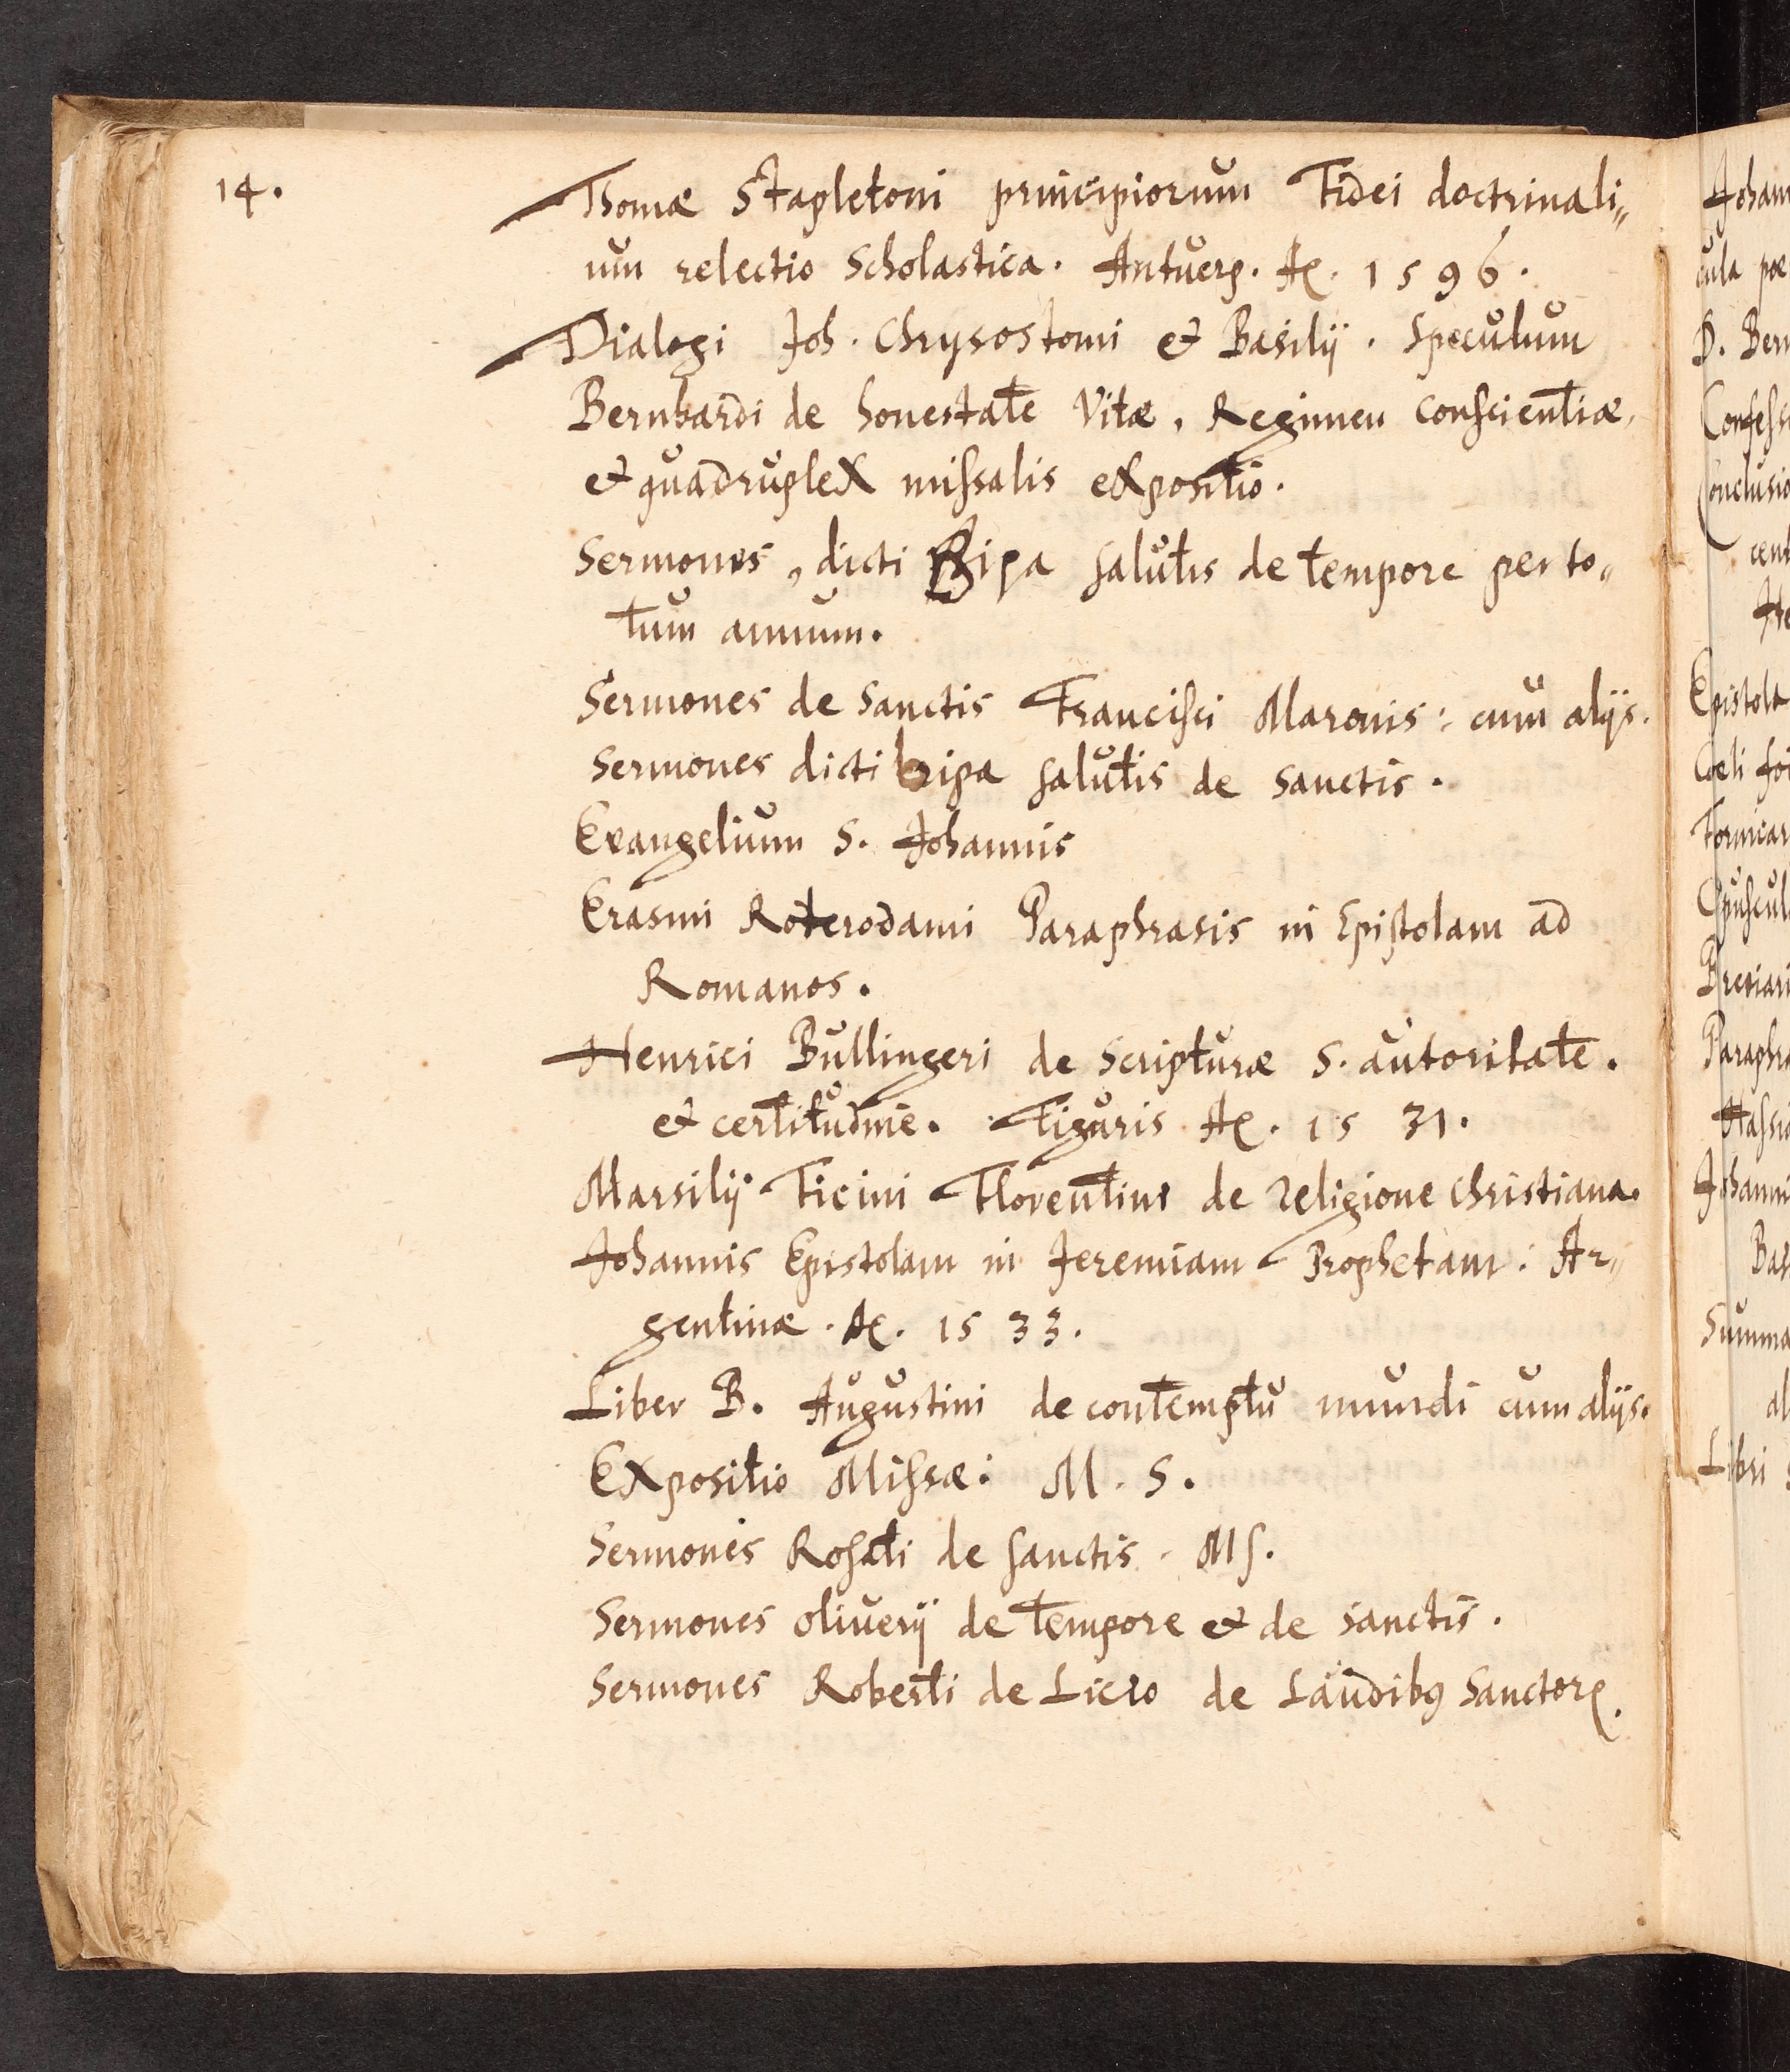 14.
Thomæ Stapletoni principiorum Fidei doctrinali„
um relectio Scholastica. Antuerp. Aꝭ. 1596.
Dialogi Joh. Chrysostomi et Basilij. Speculum
Bernhardi de honestate Vitæ, Regimen conscientiæ,
et quadruplex missalis expositio.
Sermones, dicti Biga salutis de tempore per to„
tum annum.
Sermones de Sanctis Francisci Maronis: cum alijs.
Sermones dicti biga salutis de sanctis.
Evangelium S. Johannis
Erasmi Roterodami Paraphrasis in Epistolam ad
Romanos.
Henrici Bullingeri de Scripturæ S. autoritate.
et certitudine. Tiguris Aꝭ. 1531.
Marsilij Ficini Florentini de religione christiana.
Johannis Epistolam in Jeremiam Prophetam: Ar„
gentinæ. Aꝭ. 1533.
Liber B. Augustini de contemptu mundi cum alijs.
Expositio Missæ: M. S.
Sermones Rosati de sanctis. MS.
Sermones oliverij de tempore et de sanctis.
Sermones Roberti de Licio de Laudibꝰ Sanctorꝭ.
Johan
cula poe
D. Bern
Confess
Conclusio
cent
Epistola
Coeli
Formicar
Opuscul
Breviari
Paraphra
Hassia
Johanni
Bas
Summa
al
Libri